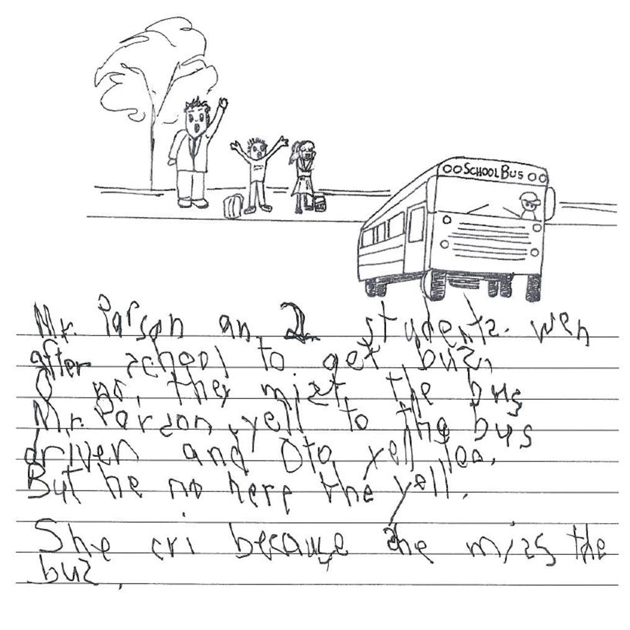 SCHOOL BUS
Mr. Parson an 2 students. wen
after school to get bus.
O no, they mist the bus
Mr. Parson yell to the bus
driven and Oto yell too.
But he no here the yell.
She cri because she miss the
bus.